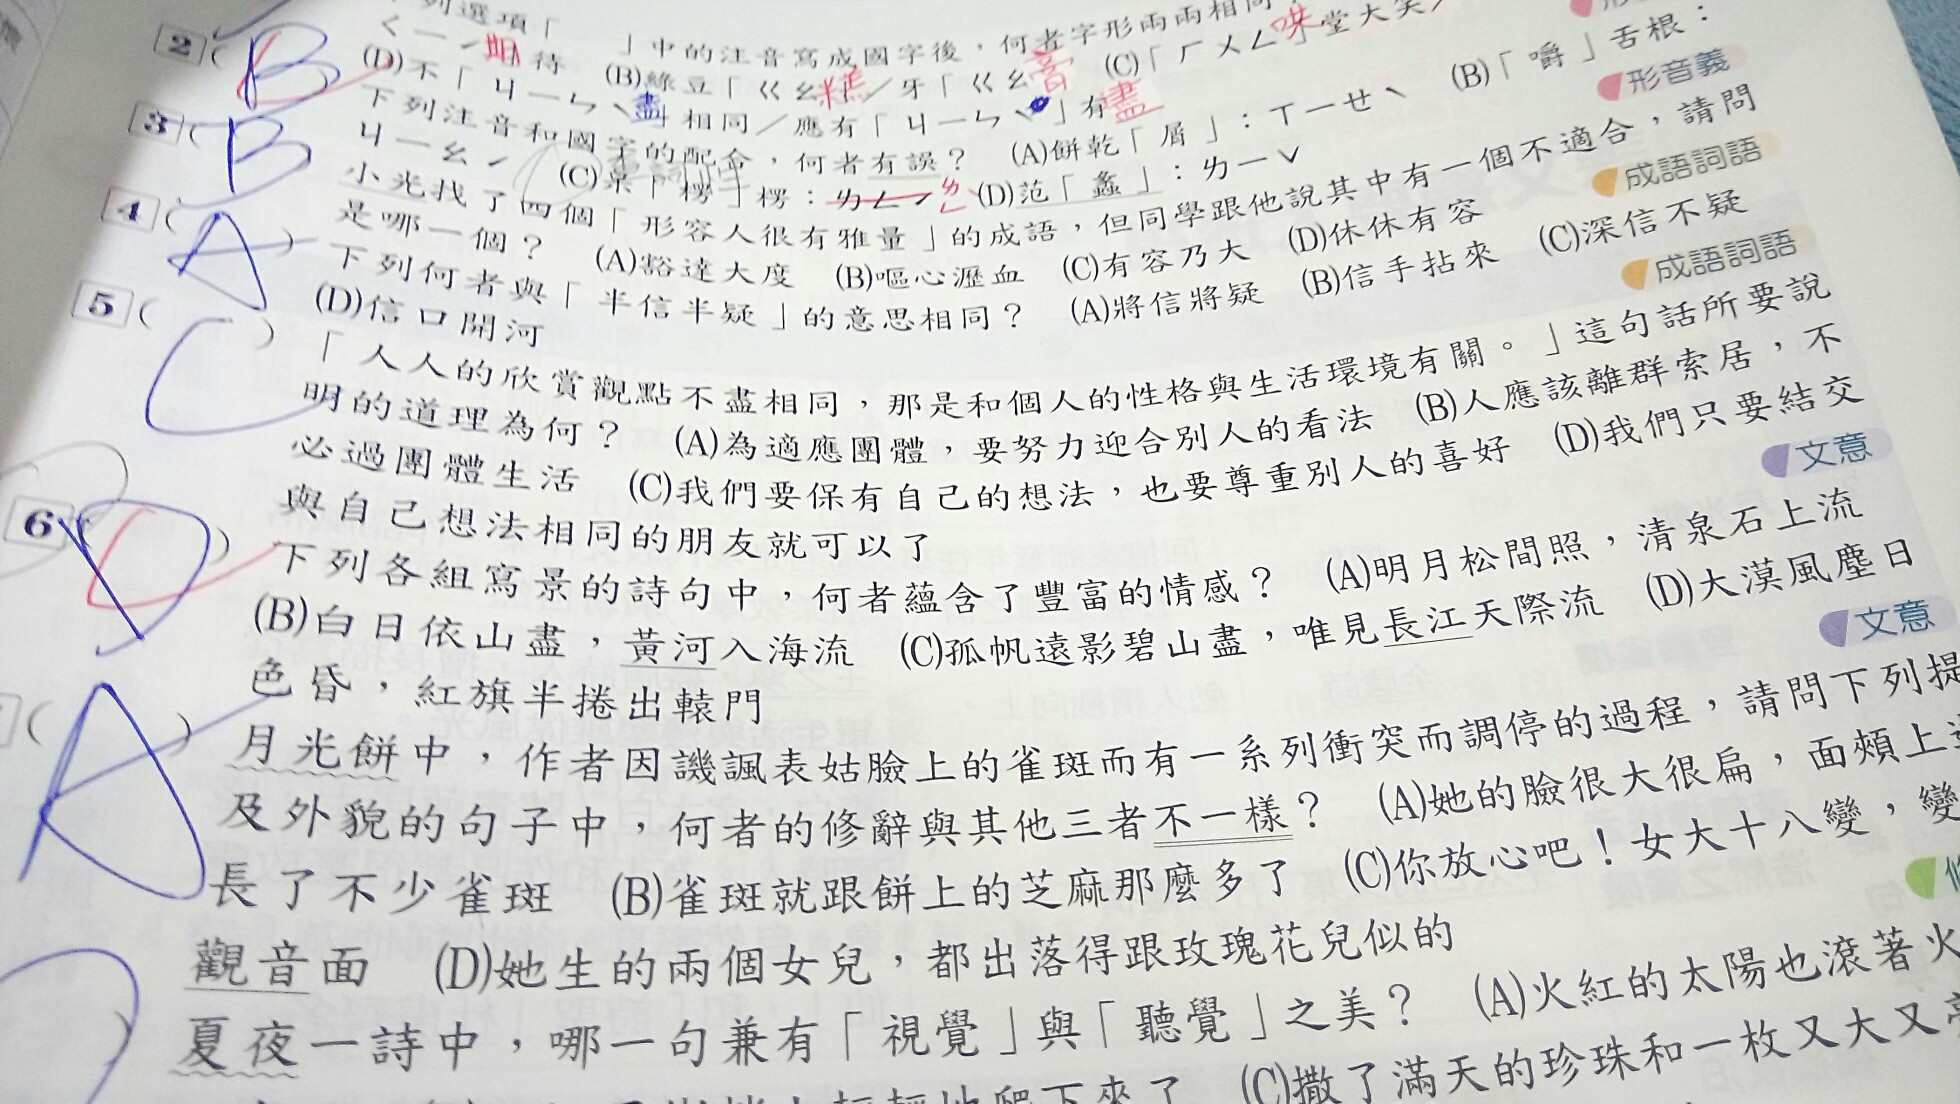 列選項「　　」中的注音寫成國字後，何者字形兩兩相同
ㄑㄧˊ期待　(B)綠豆「ㄍㄠ糕／牙「ㄍㄠ膏　(C)「ㄏㄨㄥ」堂大笑
2 ( B (D)不「ㄐㄧㄣˋ盡相同／應有「ㄐㄧㄣˋ」有盡
下列注音和國字的配合，何者有誤？　(A)餅乾「屑」：ㄒㄧㄝˋ　(B)「嚼」舌根：
形音義
3 ( B ㄐㄧㄠˊ　(C)「楞」楞：ㄌㄥˊ　(D)范「蠡」：ㄌㄧˇ
小光找了四個「形容人很有雅量」的成語，但同學跟他說其中有一個不適合，請問
是哪一個？　(A)豁達大度　(B)嘔心瀝血　(C)有容乃大　(D)休休有容
成語詞語
4 ( A ) 下列何者與「半信半疑」的意思相同？　(A)將信將疑　(B)信手拈來　(C)深信不疑
(D)信口開河
成語詞語
5 ( C ) 「人人的欣賞觀點不盡相同，那是和個人的性格與生活環境有關。」這句話所要說
明的道理為何？　(A)為適應團體，要努力迎合別人的看法　(B)人應該離群索居，不
必過團體生活　(C)我們要保有自己的想法，也要尊重別人的喜好　(D)我們只要結交
與自己想法相同的朋友就可以了
文意
6 ( D ) 下列各組寫景的詩句中，何者蘊含了豐富的情感？　(A)明月松間照，清泉石上流
(B)白日依山盡，黃河入海流　(C)孤帆遠影碧山盡，唯見長江天際流　(D)大漠風塵日
色昏，紅旗半捲出轅門
文意
( A ) 月光餅中，作者因譏諷表姑臉上的雀斑而有一系列衝突而調停的過程，請問下列提
及外貌的句子中，何者的修辭與其他三者不一樣？　(A)她的臉很大很扁，面頰上
長了不少雀斑　(B)雀斑就跟餅上的芝麻那麼多了　(C)你放心吧！女大十八變，變
觀音面　(D)她生的兩個女兒，都出落得跟玫瑰花兒似的
) 夏夜一詩中，哪一句兼有「視覺」與「聽覺」之美？　(A)火紅的太陽也滾著火
輕輕地爬下來了　(C)撒了滿天的珍珠和一枚又大又